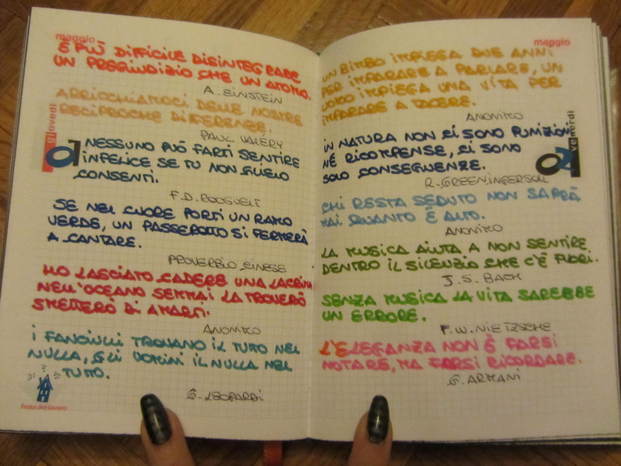 maggio
È PIÙ DIFFICILE DISINTEGRARE
UN PREGIUDIZIO CHE UN ATOMO.
A. EINSTEIN
ARRICCHIAMOCI DELLE NOSTRE
RECIPROCHE DIFFERENZE.
PAUL VALERY
giovedì
NESSUNO PUÒ FARTI SENTIRE
INFELICE SE TU NON GLIELO
CONSENTI.
F.D. ROOSVELT
SE NEL CUORE PORTI UN RAMO
VERDE, UN PASSEROTTO SI FERMERÀ
A CANTARE.
PROVERBIO CINESE
HO LASCIATO CADERE UNA LACRIMA
NELL'OCEANO SEMMAI LA TROVERÒ
SMETTERÒ DI AMARTI.
ANONIMO
I FANCIULLI TROVANO IL TUTTO NEL
NULLA, GLI UOMINI IL NULLA NEL
TUTTO.
G. LEOPARDI
Festa del lavoro
maggio
UN BIMBO IMPIEGA DUE ANNI
PER IMPARARE A PARLARE, UN
UOMO IMPIEGA UNA VITA PER
IMPARARE A TACERE.
ANONIMO
venerdì
IN NATURA NON CI SONO PUNIZIONI
NÈ RICOMPENSE, CI SONO
SOLO CONSEGUENZE.
R. GREEN INGERSOLL
CHI RESTA SEDUTO NON SAPRÀ
MAI QUANTO È ALTO.
ANONIMO
LA MUSICA AIUTA A NON SENTIRE
DENTRO IL SILENZIO CHE C'È FUORI.
J.S. BACH
SENZA MUSICA LA VITA SAREBBE
UN ERRORE.
F.W. NIETZSCHE
L'ELEGANZA NON È FARSI
NOTARE, MA FARSI RICORDARE.
G. ARMANI